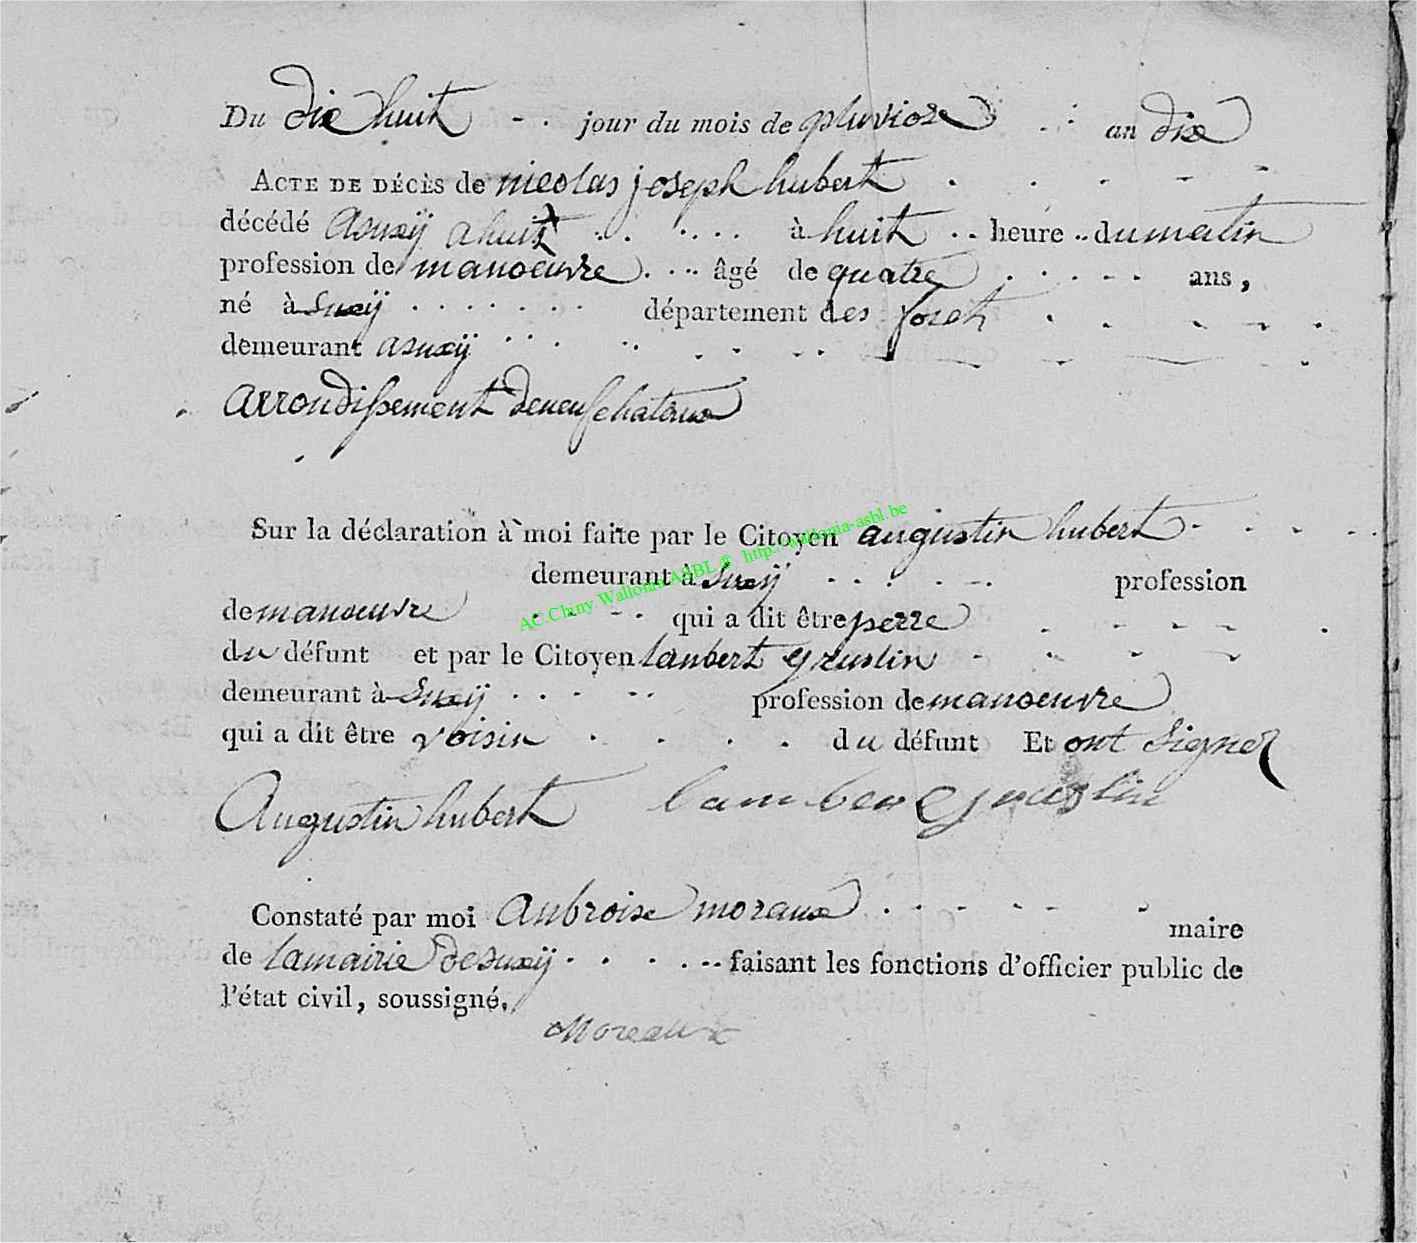 Du dix huit jour du mois de pluviose an dix
ACTE DE DÉCÈS de nicolas joseph hubert
décédé asuxÿ a huit à huit heure du matin
profession de manoeuvre âgé de quatre ans,
né à Suxÿ département des foret
demeurant asuxÿ
arrondissement deneufchataux
Sur la déclaration à moi faite par le Citoyen augustin hubert
demeurant à Suxÿ profession
de manoeuvre qui a dit être perre
du défunt et par le Citoyen lanbert gruslin
demeurant à Suxÿ profession de manoeuvre
qui a dit être voisin du défunt Et ont signez
Augustin hubert lambert gruslin
Constaté par moi anbroise moraux maire
de lamairie desuxÿ faisant les fonctions d'officier public de
l'état civil, soussigné.
Moreaux
AC Cluny Wallonia ASBL © http://wallonia-asbl.be